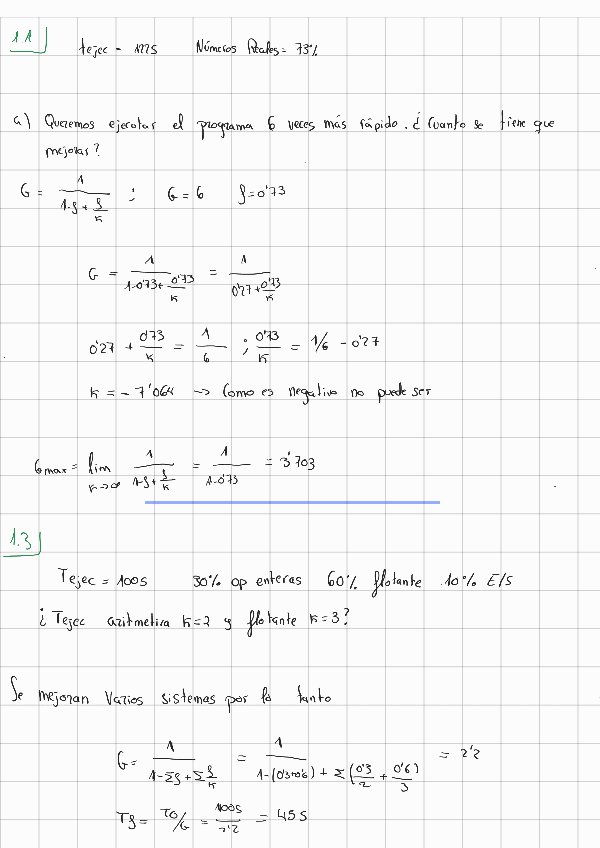 1.1
tejec = 122s Números Reales = 73%
a) Queremos ejecutar el programa 6 veces más rápido. ¿Cuanto se tiene que
mejorar?
G = 1 / (1-f + f/k) ; G = 6 f = 0'73
G = 1 / (1-0'73 + 0'73/k) = 1 / (0'27 + 0'73/k)
0'27 + 073/k = 1/6 ; 0'73/k = 1/6 - 0'27
k = - 7'064 -> Como es negativo no puede ser
Gmax = lim k->∞ 1 / (1-f + f/k) = 1 / (1-0'73) = 3'703
1.3
Tejec = 100s 30% op enteras 60% flotante 10% E/S
¿Tejec aritmetica k=2 y flotante k=3?
Se mejoran varios sistemas por lo tanto
G = 1 / (1-Σf + Σ f/k) = 1 / (1-(0'3+0'6) + Σ(0'3/2 + 0'6/3)) = 2'2
Tf = To/G = 100s/2'2 = 45s